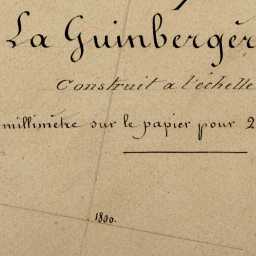 La Guinberger
Construit a l'échelle
millimètre sur le papier pour 2
1800.